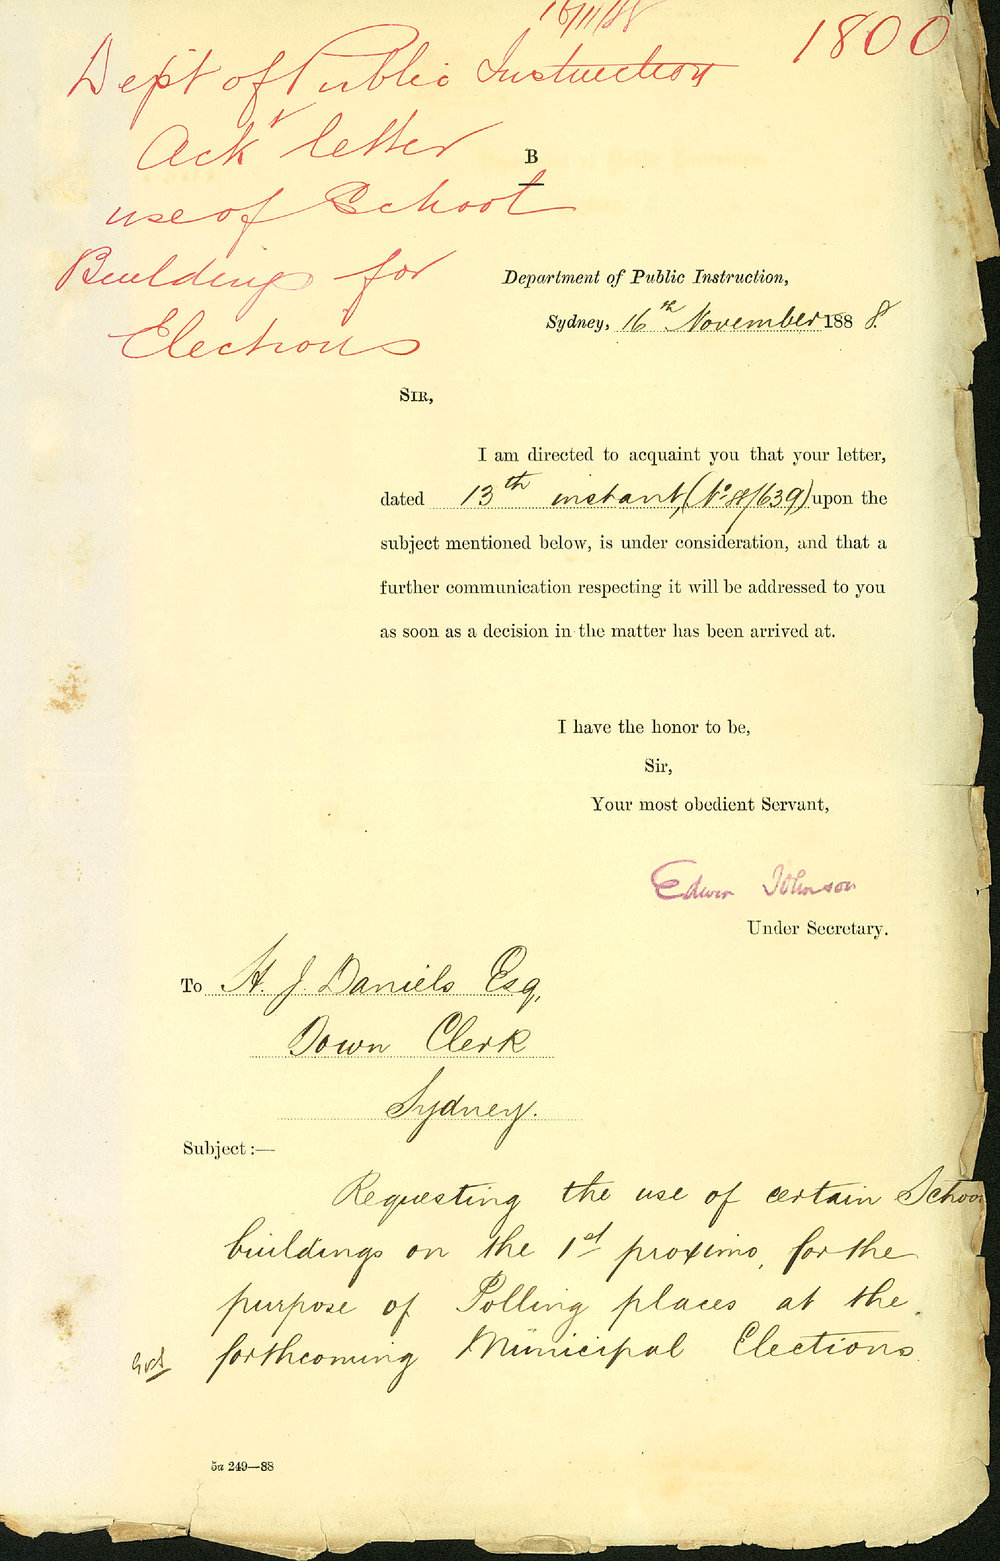 16/11/88
1800
Dept of Public Instruction
Ackr letter
use of School
Buildings for
Elections
B
Department of Public Instruction,
Sydney, 16th November 1888.
SIR,
I am directed to acquaint you that your letter,
dated 13th instant, (No 88/639) upon the
subject mentioned below, is under consideration, and that a
further communication respecting it will be addressed to you
as soon as a decision in the matter has been arrived at.
I have the honor to be,
Sir,
Your most obedient Servant,
Edwin Johnson
Under Secretary.
To H. J. Daniels Esq,
Town Clerk
Sydney.
Subject:—
Requesting the use of certain School
buildings on the 1st proximo, for the
purpose of Polling places at the
forthcoming Municipal Elections
5a 249—88